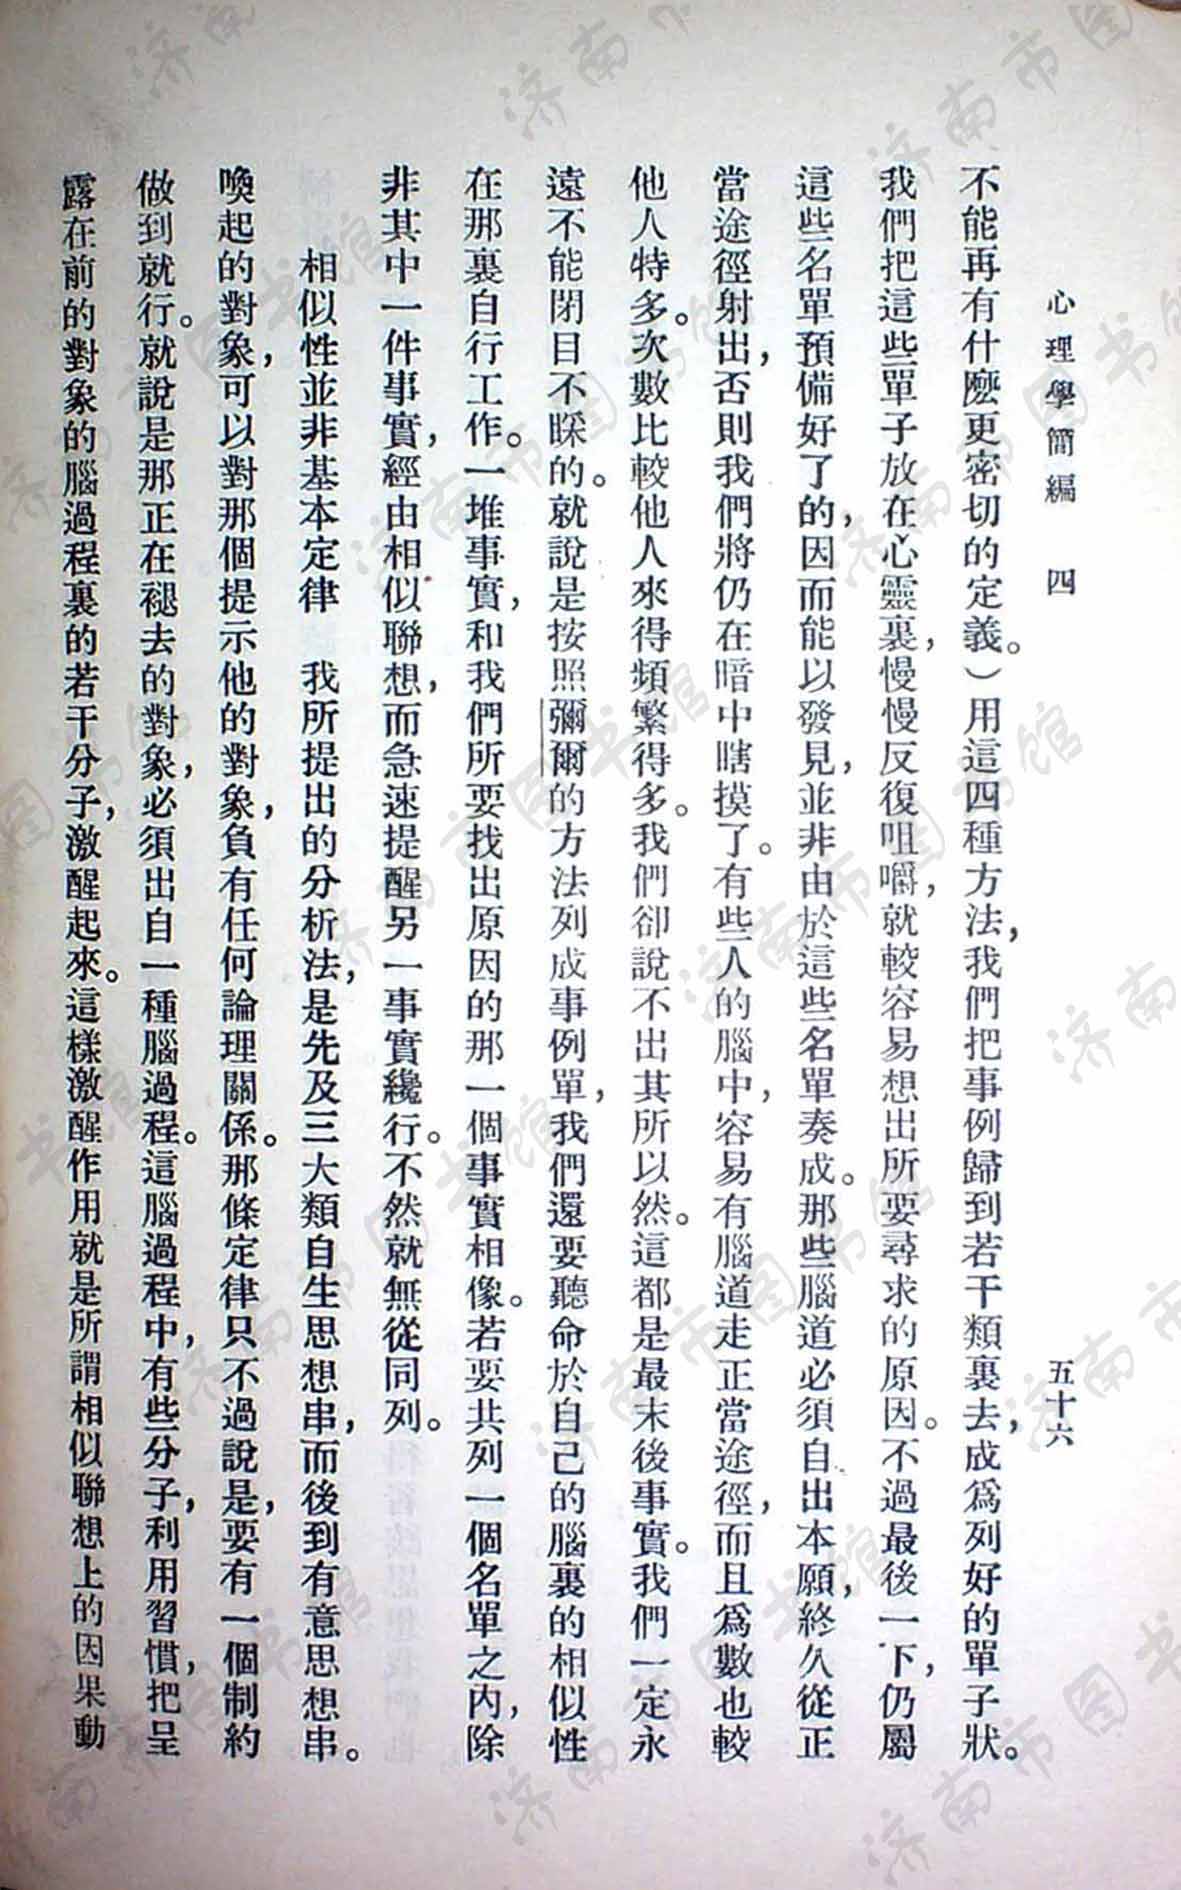 心理學簡編 四 五十六
不能再有什麽更密切的定義。）用這四種方法，我們把事例歸到若干類裏去，成爲列好的單子狀。
我們把這些單子放在心靈裏，慢慢反復咀嚼，就較容易想出所要尋求的原因。不過最後一下，仍屬
這些名單預備好了的，因而能以發見，並非由於這些名單奏成。那些腦道必須自出本願，終久從正
當途徑射出，否則我們將仍在暗中瞎摸了。有些人的腦中，容易有腦道走正當途徑，而且爲數也較
他人特多。次數比較他人來得頻繁得多。我們卻說不出其所以然。這都是最末後事實。我們一定永
遠不能閉目不睬的。就說是按照彌爾的方法列成事例單，我們還要聽命於自己的腦裏的相似性
在那裏自行工作。一堆事實，和我們所要找出原因的那一個事實相像。若要共列一個名單之內，除
非其中一件事實，經由相似聯想，而急速提醒另一事實纔行。不然就無從同列。
相似性並非基本定律 我所提出的分析法，是先及三大類自生思想串，而後到有意思想串。
喚起的對象，可以對那個提示他的對象，負有任何論理關係。那條定律只不過說是，要有一個制約
做到就行。就說是那正在褪去的對象，必須出自一種腦過程。這腦過程中，有些分子，利用習慣，把呈
露在前的對象的腦過程裏的若干分子，激醒起來。這樣激醒作用就是所謂相似聯想上的因果動